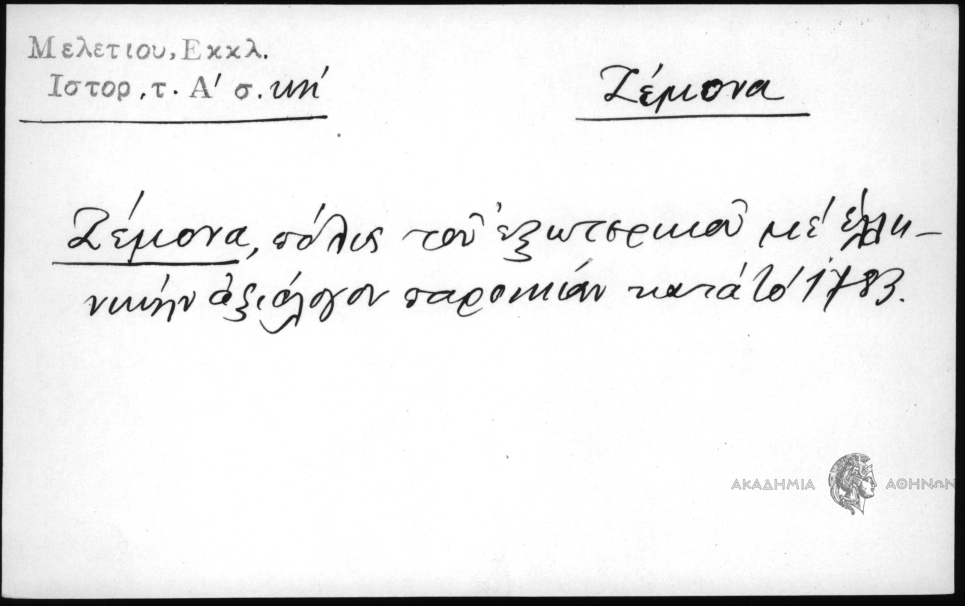 Μελετιου, Εκκλ.
Ιστορ. τ. Α' σ. κή
Ζέμονα
Ζέμονα, πόλις τοῦ ἐξωτερικοῦ μέ ἑλλη-
νικήν ἀξιόλογον παροικίαν κατά τό 1783.
ΑΚΑΔΗΜΙΑ ΑΘΗΝΩΝ